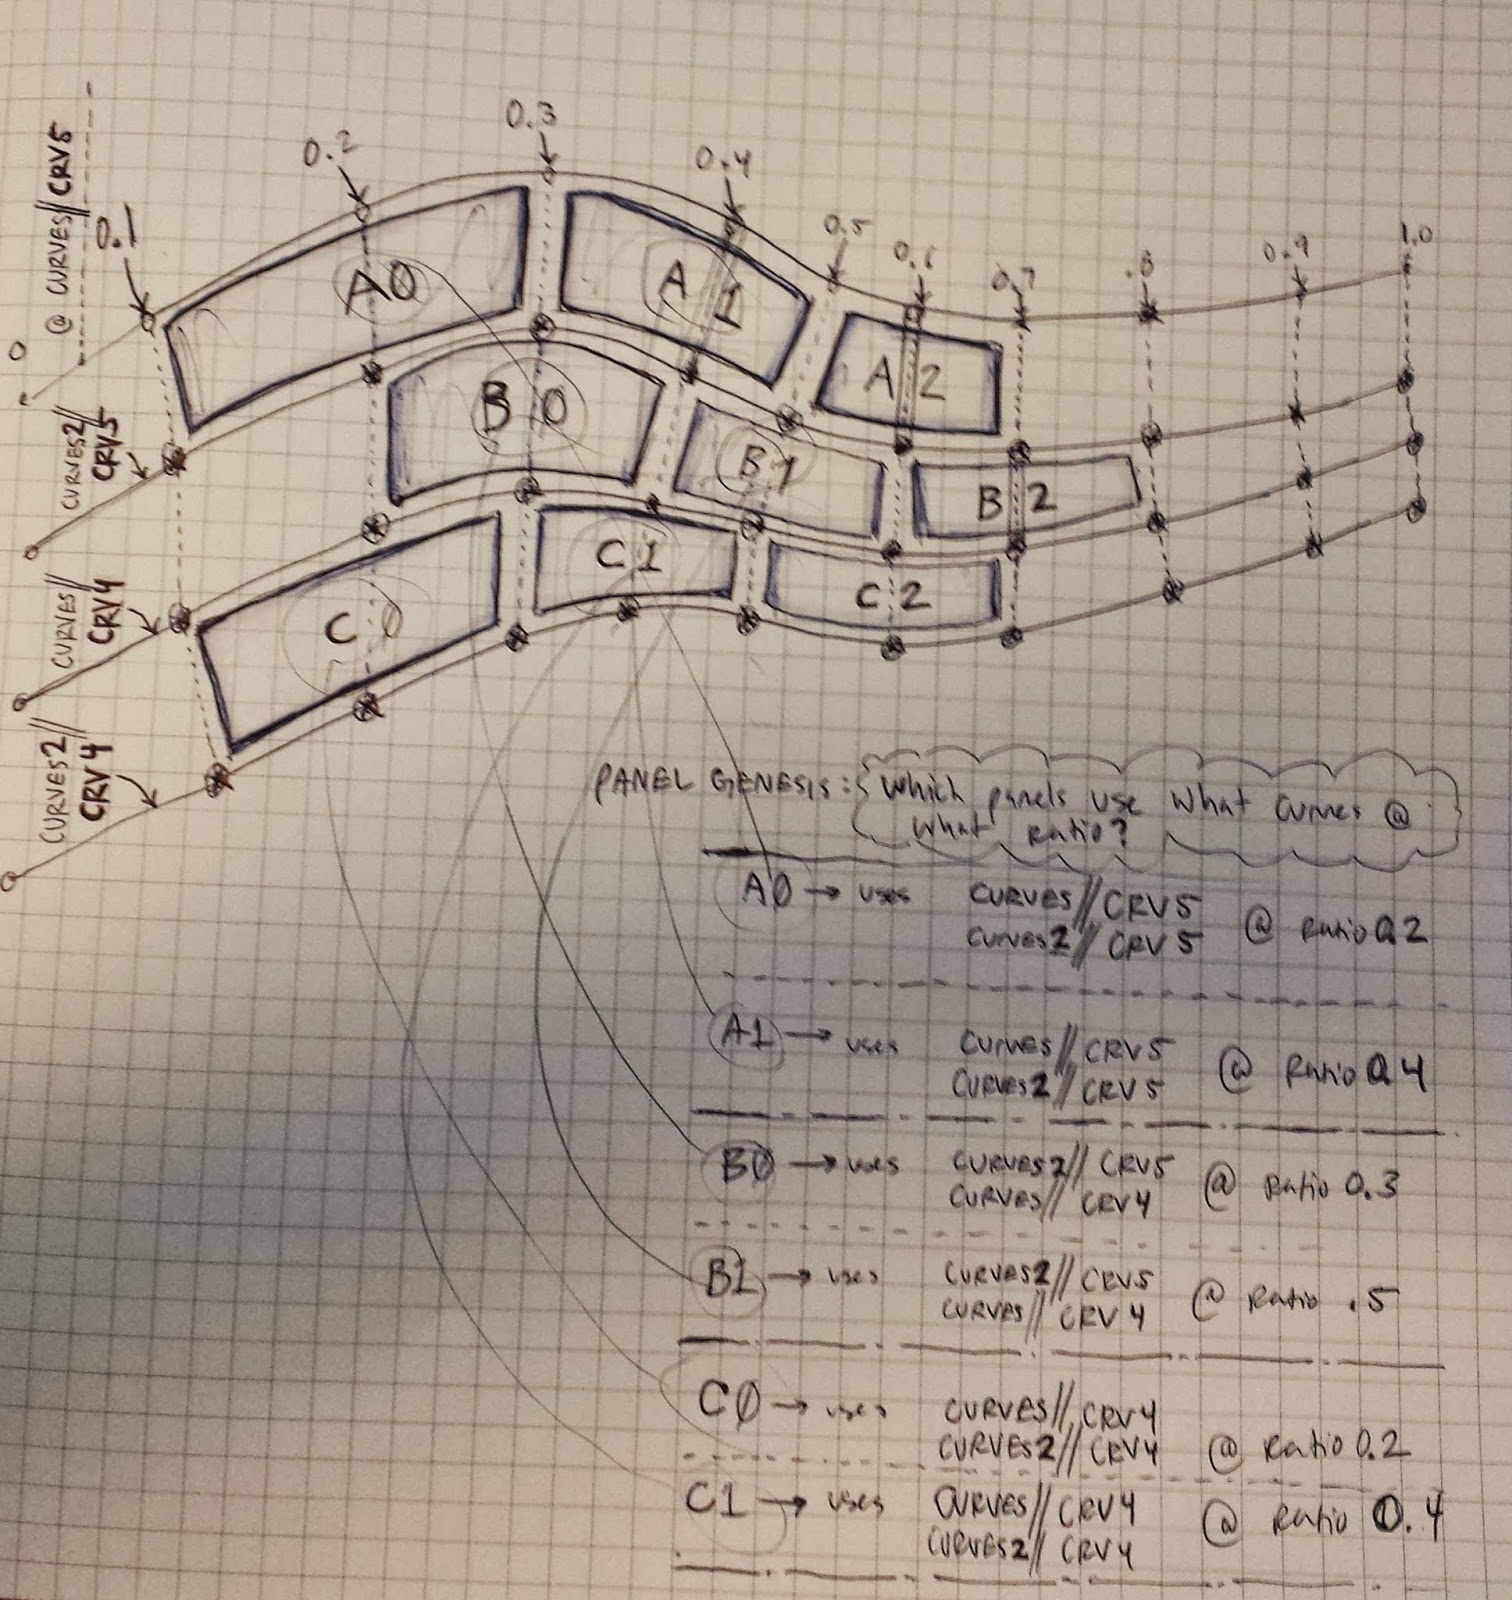 0.3
0.2
0.4
@ CURVES//CRV5
0.1
0.5
0.6
0.7
.8
0.9
1.0
0
A0
A1
A2
CURVES2//
CRV5
B0
B1
B2
CURVES//
CRV4
C0
C1
C2
CURVES2//
CRV4
PANEL GENESIS: Which panels use what curves @
what ratio?
A0 → uses CURVES// CRV5
CURVES2// CRV5 @ Ratio 0.2
A1 → uses CURVES// CRV5
CURVES2// CRV5 @ Ratio 0.4
B0 → uses CURVES2// CRV5
CURVES// CRV4 @ Ratio 0.3
B1 → uses CURVES2// CRV5
CURVES// CRV4 @ Ratio .5
C0 → uses CURVES// CRV4
CURVES2// CRV4 @ Ratio 0.2
C1 → uses CURVES// CRV4
CURVES2// CRV4 @ Ratio 0.4